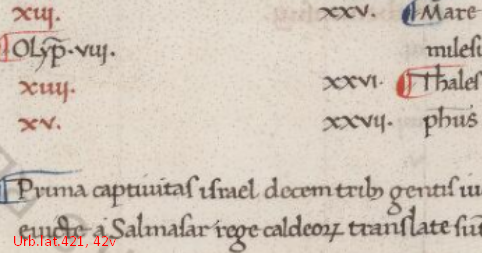 xiij. xxv. Mare
Olyp̄. viij. milesi
xiiij. xxvi. Thales
xv. xxvij. phus
Prima captiuitas israel decem trib; gentis iu
a Salmasar rege caldeoꝝ translate sūt
Urb.lat.421, 42v